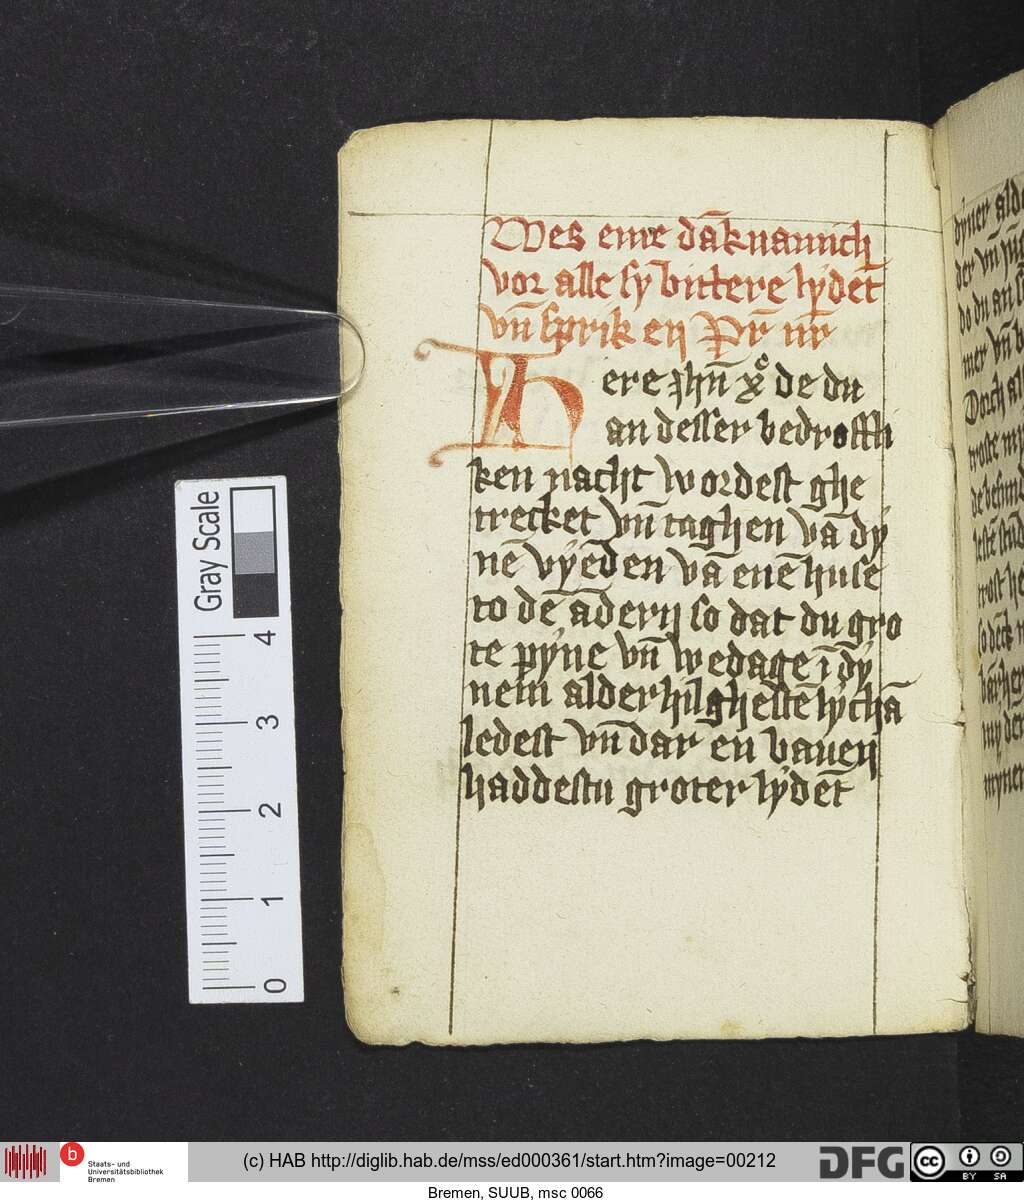 Wes eme dāknamich
vor alle sy bittere lydēt
vn̄ sprik en Pr̄ nr̄
Here ihū xͦ de du
an desser bedroffli
ken nacht wordest ghe
trecket vn̄ taghen vā dy
nē vyēden vā enē huse
to dē ādern so dat du gro
te pyne vn̄ wedage ī dy
nem alderhilghestē lychā
ledest vn̄ dar en bauen
haddestu groter lydēt
dyner alde
der vn̄
do du an
mer vn̄
Dorch al
troste my
Gray Scale
4
3
2
1
0
b
Staats- und
Universitätsbibliothek
Bremen
(c) HAB http://diglib.hab.de/mss/ed000361/start.htm?image=00212
DFG
cc
BY SA
Bremen, SUUB, msc 0066